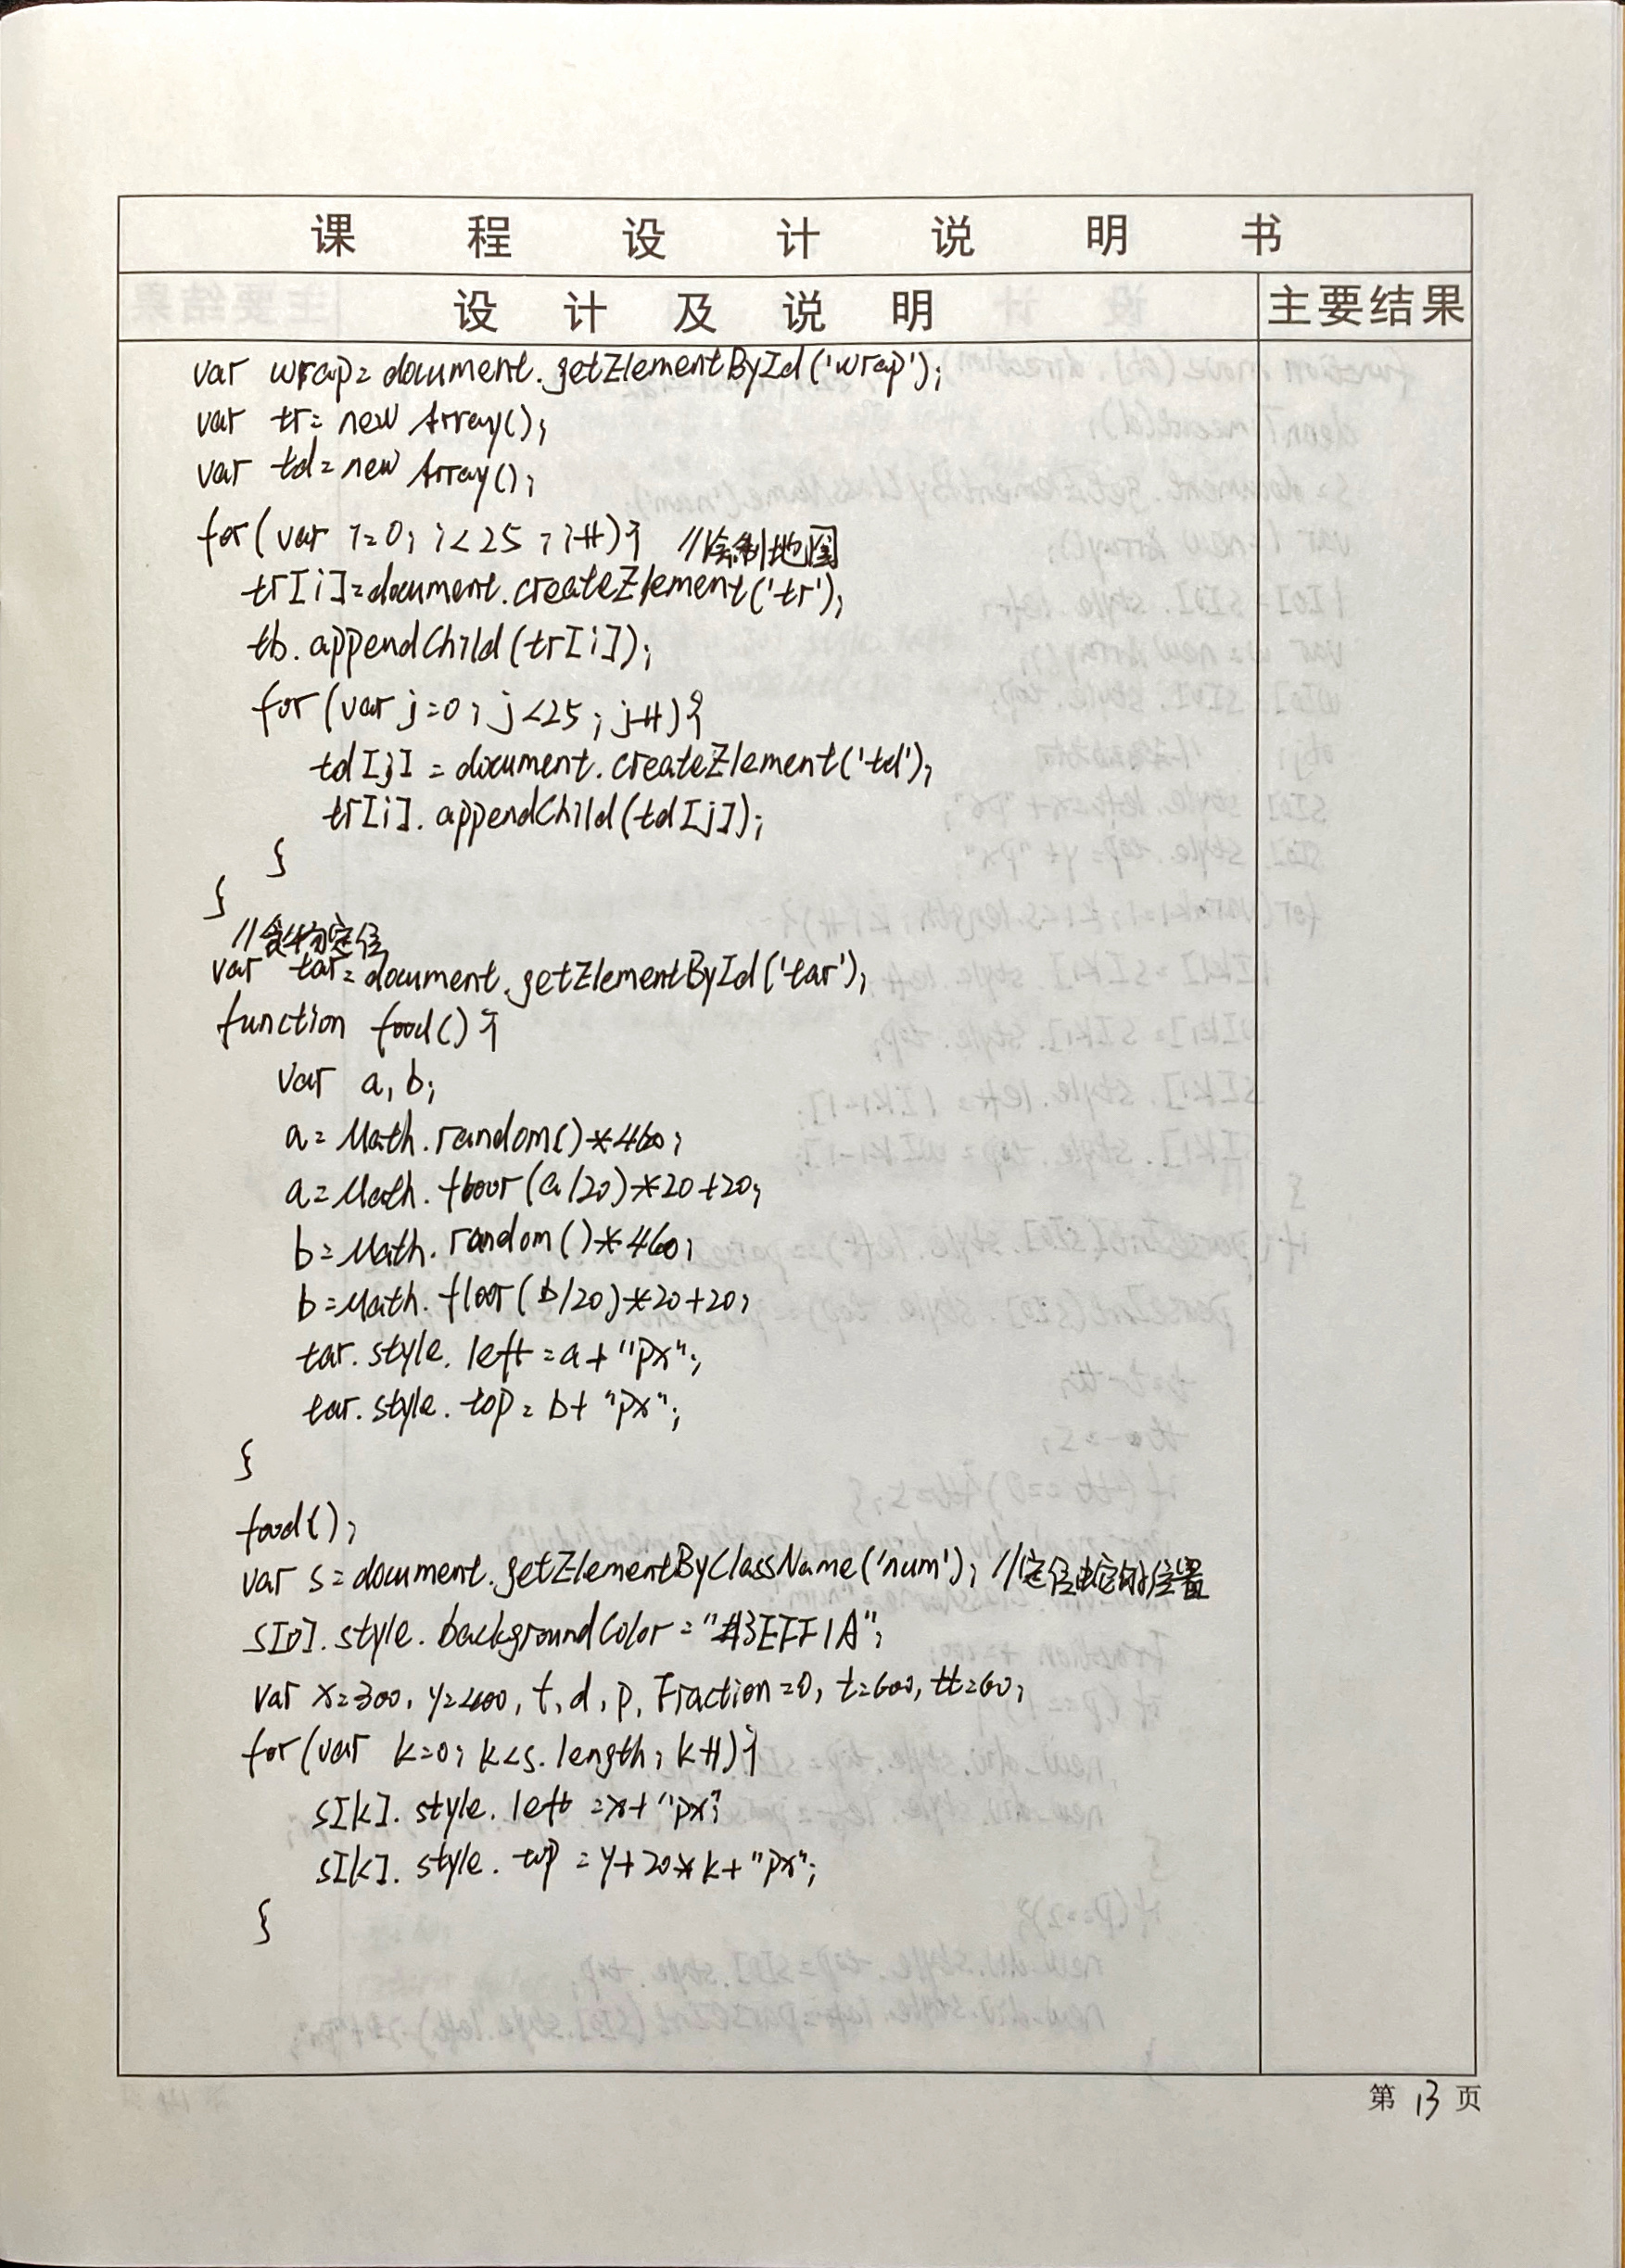 课程设计说明书
设计及说明 主要结果
var wrap=document.getElementById('wrap');
var tr=new Array();
var td=new Array();
for(var i=0;i<25;i++){ //绘制地图
tr[i]=document.createElement('tr');
tb.appendChild(tr[i]);
for(var j=0;j<25;j++){
td[j]=document.createElement('td');
tr[i].appendChild(td[j]);
}
}
//食物定位
var tar=document.getElementById('tar');
function food(){
var a,b;
a=Math.random()*460;
a=Math.floor(a/20)*20+20;
b=Math.random()*460;
b=Math.floor(b/20)*20+20;
tar.style.left=a+"px";
tar.style.top=b+"px";
}
food();
var s=document.getElementByClassName('num'); //定位蛇的位置
s[0].style.backgroundColor="#3EFF1A";
var x=300,y=400,t,d,p,Fraction=0,t=600,tt=60;
for(var k=0;k<s.length;k++){
s[k].style.left=x+"px";
s[k].style.top=y+20*k+"px";
}
第13页